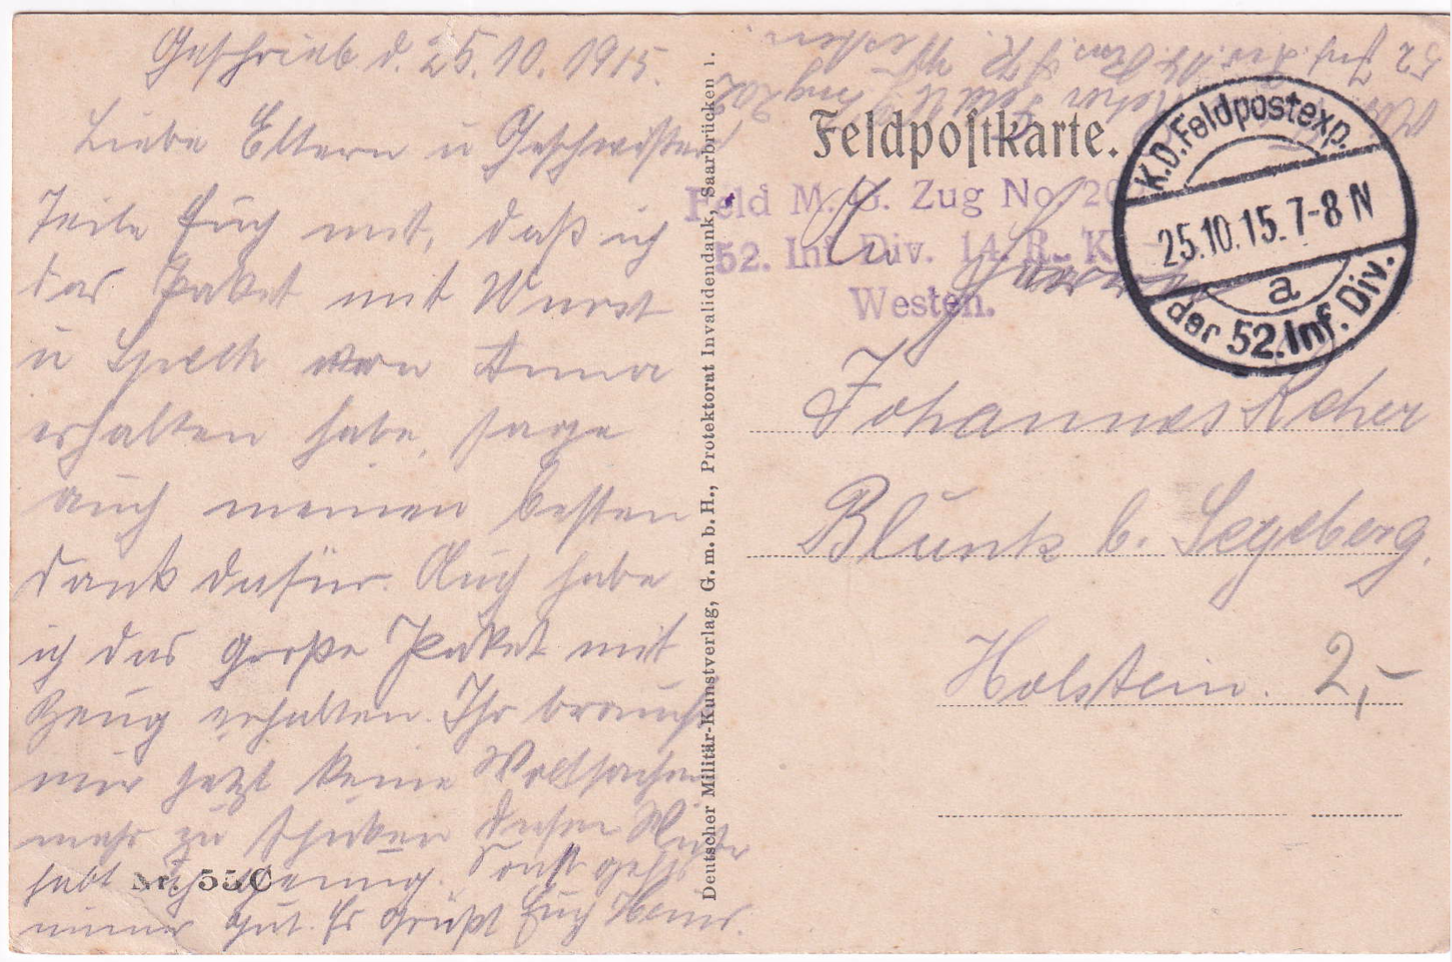 Geschrieb d. 25.10.1915.
Liebe Eltern u Geschwister
Teile Euch mit, daß ich
das Paket mit Wurst
u Speck von Anna
erhalten habe, sage
auch meinen besten
Dank dafür. Auch habe
ich das große Paket mit
Zeug erhalten. Ihr braucht
mir jetzt keine Wollsachen
mehr zu schicken diesen Winter
habt ich genug. Sonst gehts
immer gut. Es grüßt Euch Hans.
Nr. 55C
Deutscher Militär-Kunstverlag, G.m.b.H., Protektorat Invalidendank, Saarbrücken 1.
52 Inf. Div. 14. Res. K. Westen.
Feld M.G. Zug 202
Feldpostkarte.
Feld M. G. Zug No. 20
52. Inf. Div. 14. R.- K.
Westen.
K.D. Feldpostexp.
25.10.15. 7-8 N
a
der 52. Inf. Div.
An
Herrn
Johannes Reher
Blunk b. Segeberg.
Holstein.
2,-